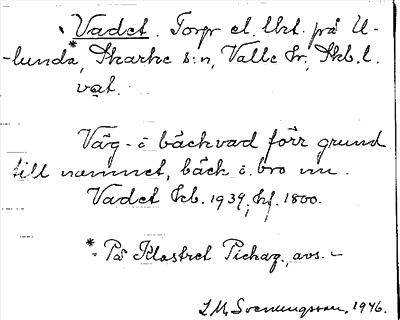 Vadet. Torp el. lht. på U-
-lunda*, Skarke s:n, Valle hr, Skb.l.
vat.
Väg- o bäckvad förr grund
till namnet, bäck o. bro nu.
Vadet Kb. 1939, Hf. 1800.
* På Klostret
L M Svenungsson, 1946.